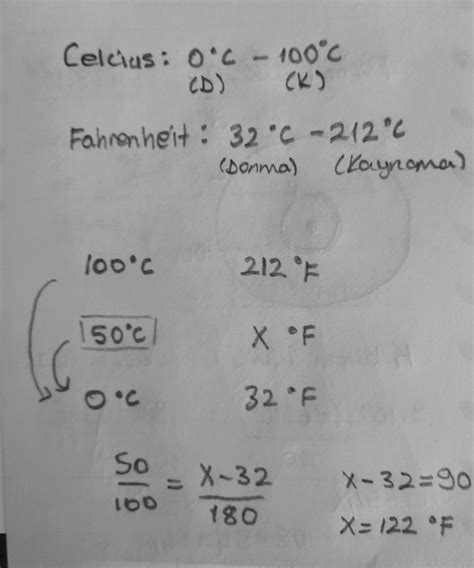 Celcius: 0°C - 100°C
(D) (K)
Fahrenheit: 32°C - 212°C
(Donma) (Kaynama)
100°C 212°F
50°C X °F
0°C 32°F
50/100 = X-32/180 X-32=90
X=122 °F